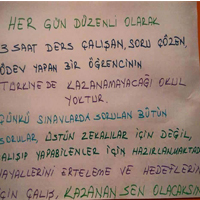 HER GÜN DÜZENLİ OLARAK
3 SAAT DERS ÇALIŞAN, SORU ÇÖZEN,
ÖDEV YAPAN BİR ÖĞRENCİNİN
TÜRKİYE'DE KAZANAMAYACAĞI OKUL
YOKTUR.
ÇÜNKÜ SINAVLARDA SORULAN BÜTÜN
SORULAR, ÜSTÜN ZEKALILAR İÇİN DEĞİL,
ÇALIŞIP YAPABİLENLER İÇİN HAZIRLANMAKTADI
HAYALLERİNİ ERTELEME VE HEDEFLERİN
İÇİN ÇALIŞ, KAZANAN SEN OLACAKSIN